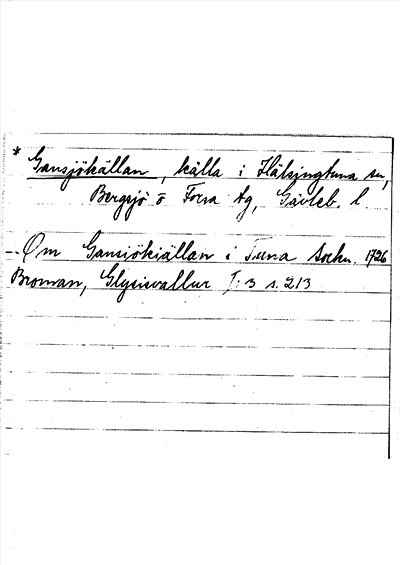 * Gansjökällan, källa i Hälsingtuna sn,
Bergsjö o Forsa tg, Gävleb. l
-- Om Gansiökiällan i Tuna Sockn. 1726
Broman, Glysisvallur I: 3 s. 213